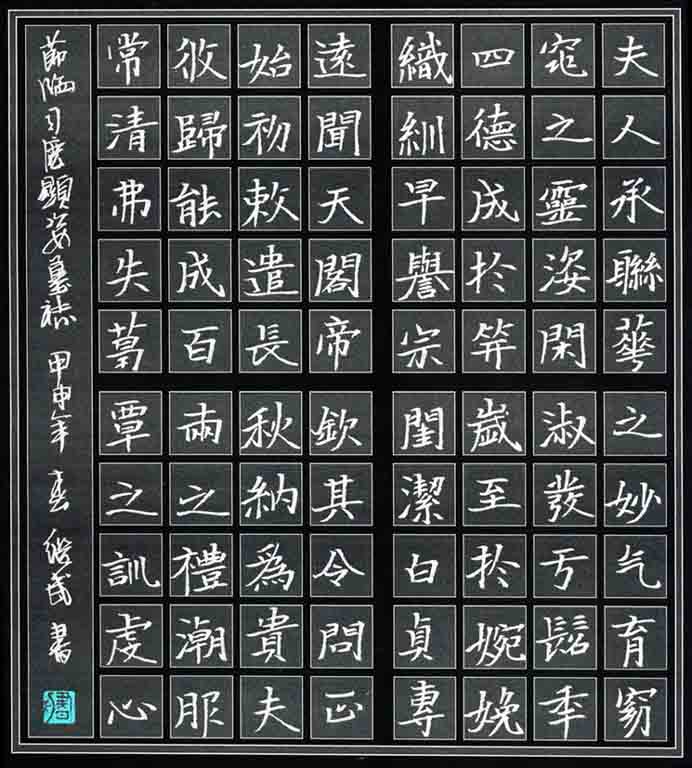 夫人承聯華之妙气育窈
窕之靈姿閑淑發于髫年
四德成於笄歲至於婉娩
織紃早譽宗閨潔白貞專
遠聞天閣帝欽其令問正
始初敕遣長秋納為貴夫
攸歸能成百兩之禮潮服
常清弗失葛覃之訓虔心
節臨司馬顯姿墓誌 甲申年 春 書